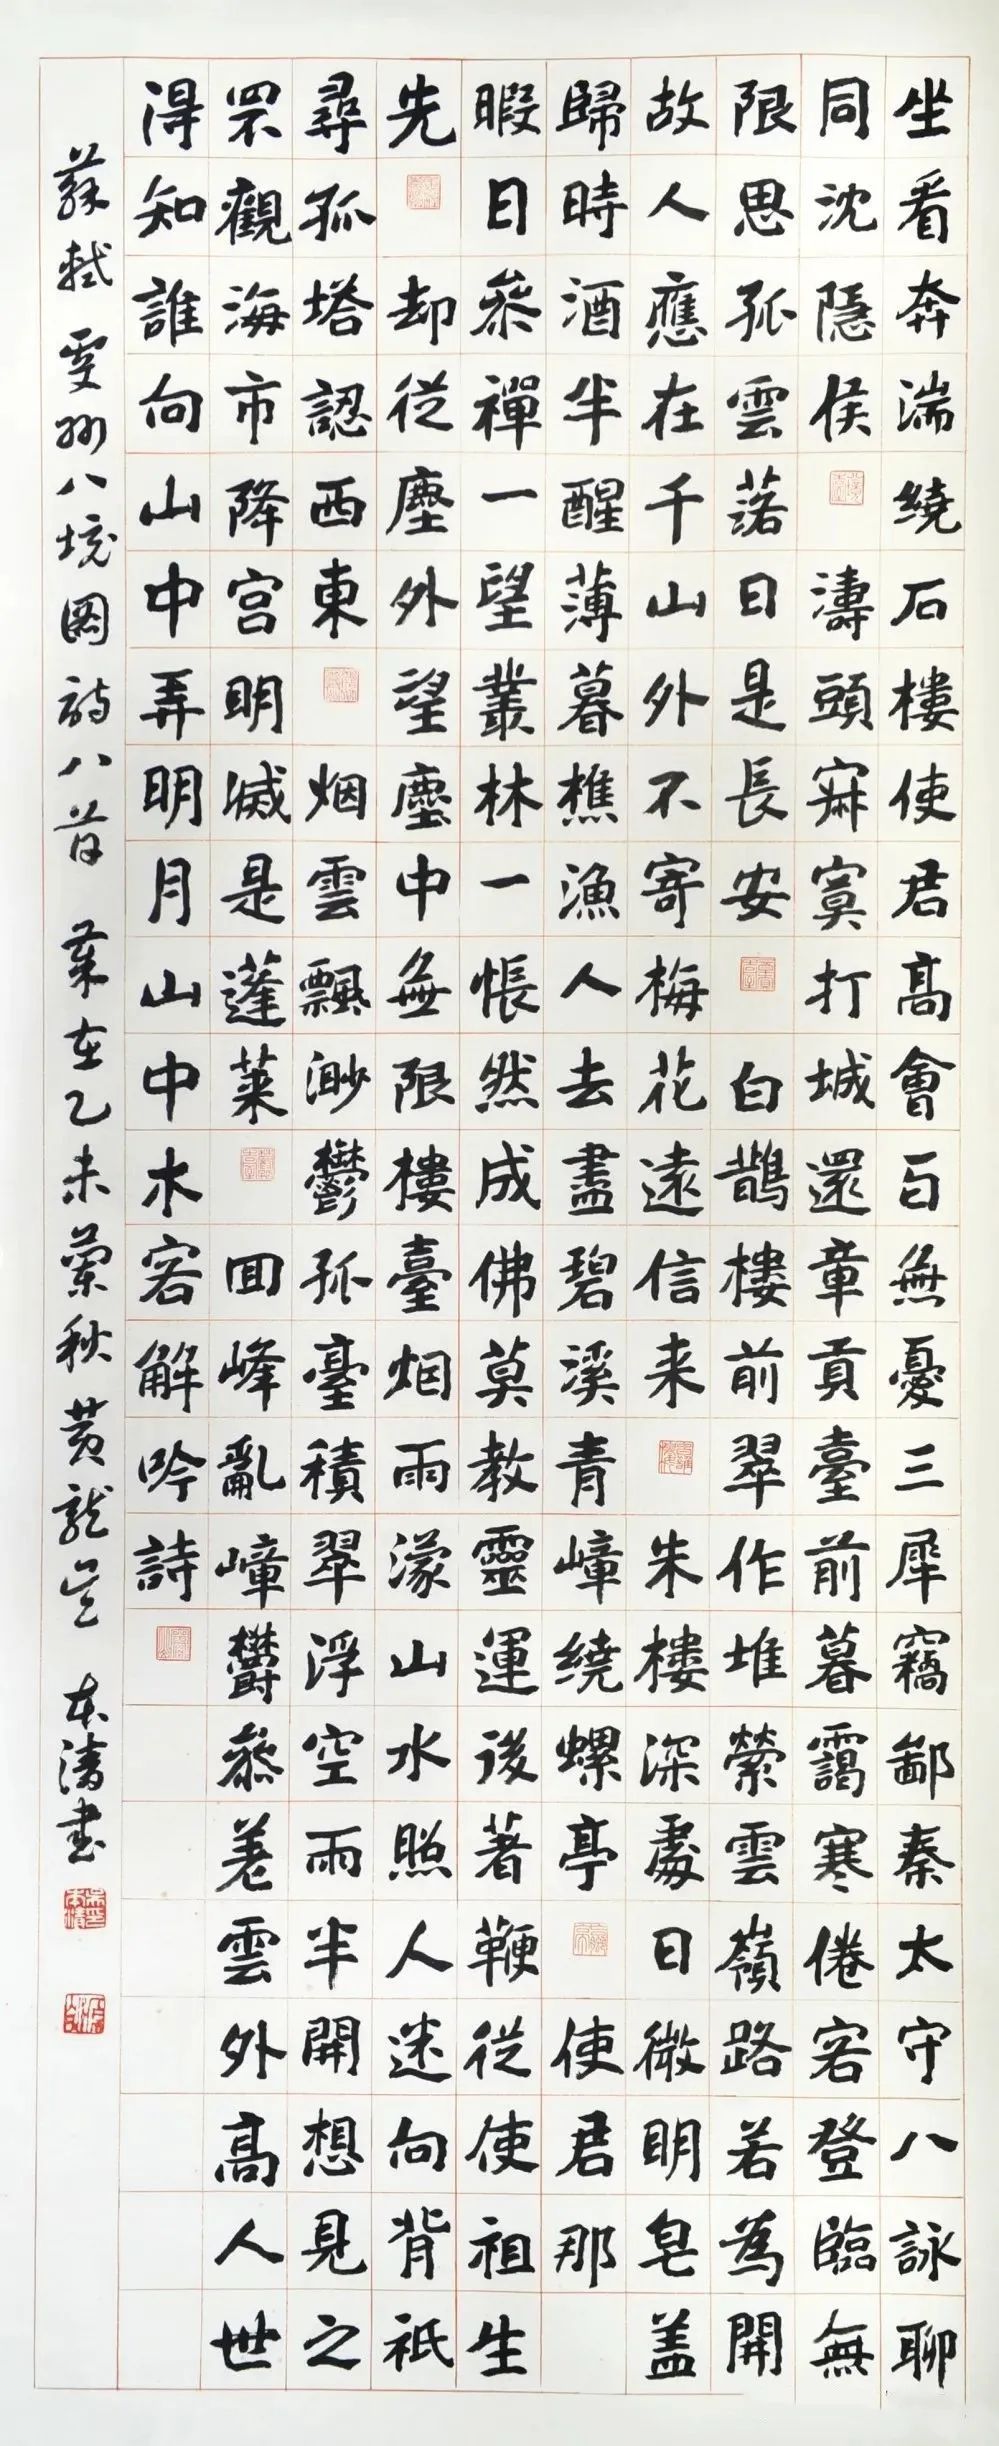 坐看奔湍繞石樓使君高會百無憂三犀竊鄙秦太守八詠聊
同沈隱侯 濤頭寂寞打城還章貢臺前暮靄寒倦客登臨無
限思孤雲落日是長安 白鵲樓前翠作堆縈雲嶺路若為開
故人應在千山外不寄梅花遠信来 朱樓深處日微明皂蓋
歸時酒半醒薄暮樵漁人去盡碧溪青嶂繞螺亭 使君那
暇日參禪一望叢林一悵然成佛莫教靈運後著鞭從使祖生
先 却從塵外望塵中無限樓臺烟雨濛山水照人迷向背祇
尋孤塔認西東 烟雲飄渺鬱孤臺積翠浮空雨半開想見之
罘觀海市降宮明滅是蓬萊 回峰亂嶂鬱參差雲外高人世
得知誰向山中弄明月山中木客解吟詩
蘇軾 虔州八境圖詩八首 歲在乙未蘭秋 黄龍 本清書